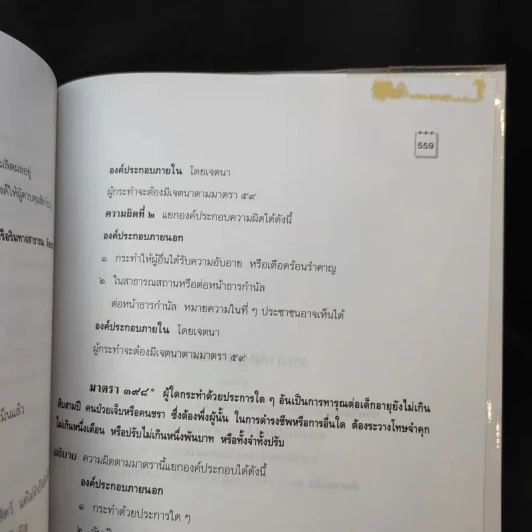 559
องค์ประกอบภายใน โดยเจตนา
ผู้กระทำจะต้องมีเจตนาตามมาตรา ๕๙
ความผิดที่ ๒ แยกองค์ประกอบความผิดได้ดังนี้
องค์ประกอบภายนอก
๑. กระทำให้ผู้อื่นได้รับความอับอาย หรือเดือดร้อนรำคาญ
๒. ในสาธารณสถานหรือต่อหน้าธารกำนัล
ต่อหน้าธารกำนัล หมายความในที่ ๆ ประชาชนอาจเห็นได้
องค์ประกอบภายใน โดยเจตนา
ผู้กระทำจะต้องมีเจตนาตามมาตรา ๕๙
มาตรา ๓๙๘ ผู้ใดกระทำด้วยประการใด ๆ อันเป็นการทารุณต่อเด็กอายุยังไม่เกิน
สิบห้าปี คนป่วยเจ็บหรือคนชรา ซึ่งต้องพึ่งผู้นั้น ในการดำรงชีพหรือการอื่นใด ต้องระวางโทษจำคุก
ไม่เกินหนึ่งเดือน หรือปรับไม่เกินหนึ่งพันบาท หรือทั้งจำทั้งปรับ
อธิบาย ความผิดตามมาตรานี้แยกองค์ประกอบได้ดังนี้
องค์ประกอบภายนอก
๑ กระทำด้วยประการใด ๆ